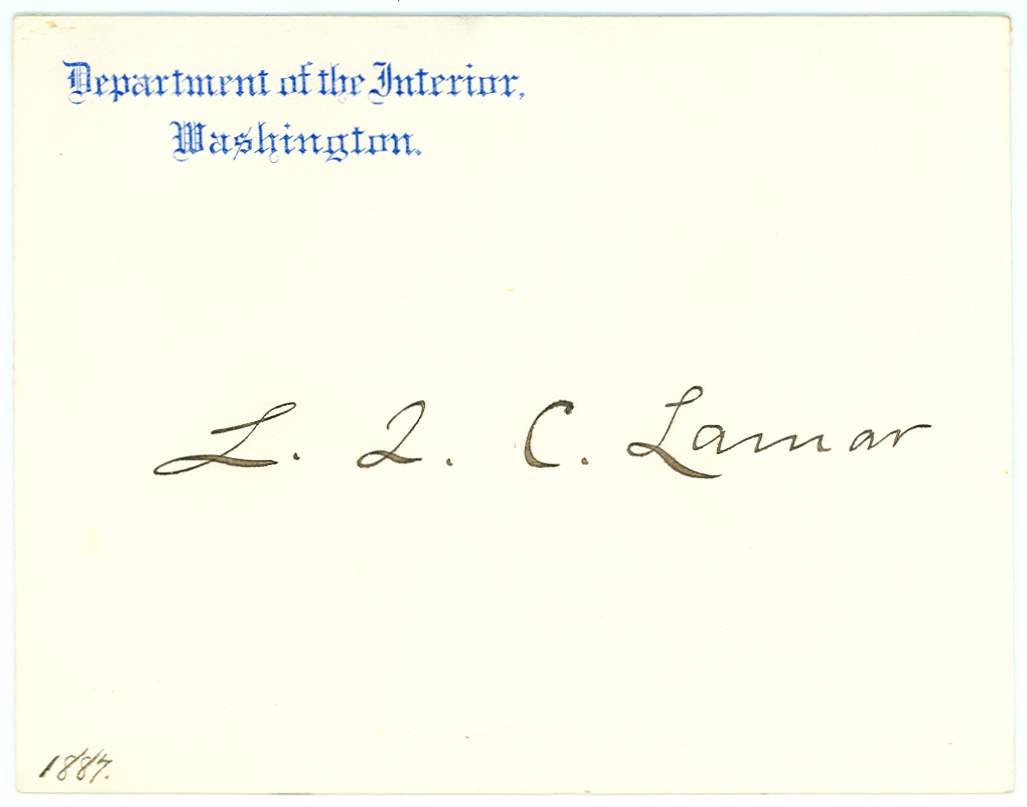 Department of the Interior,
Washington.
L. Q. C. Lamar
1887.